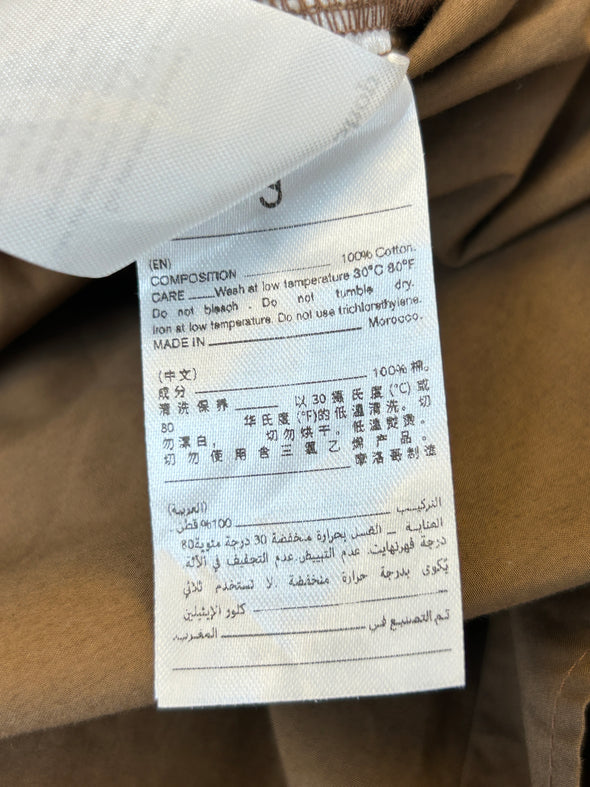 (EN)
COMPOSITION 100% Cotton.
CARE Wash at low temperature 30°C 80°F
Do not bleach . Do not tumble dry.
Iron at low temperature. Do not use trichlorethylene.
MADE IN Morocco.
(中文)
成分 100% 棉。
清洗保养 以 30 摄氏度 (°C) 或
80 华氏度 (°F)的低温清洗。切
勿漂白, 切勿烘干。低温熨烫。
切勿使用含三氯乙烯产品。
摩洛哥制造
(العربية)
التركيب 100% قطن
العناية – الغسل بحرارة منخفضة 30 درجة مئوية 80
درجة فهرنهايت. عدم التبييض. عدم التجفيف في الآلة
يُكوى بدرجة حرارة منخفضة. لا تستخدم ثلاثي
كلور الإيثيلين
تم التصنيع في المغرب.